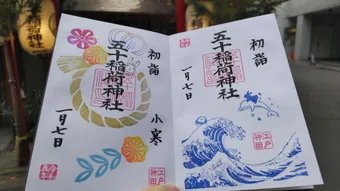 稲荷神社
初詣
五十稲荷神社
一月七日
初詣
五十稲荷神社
小寒
一月七日
江戸
神田
江戸
神田